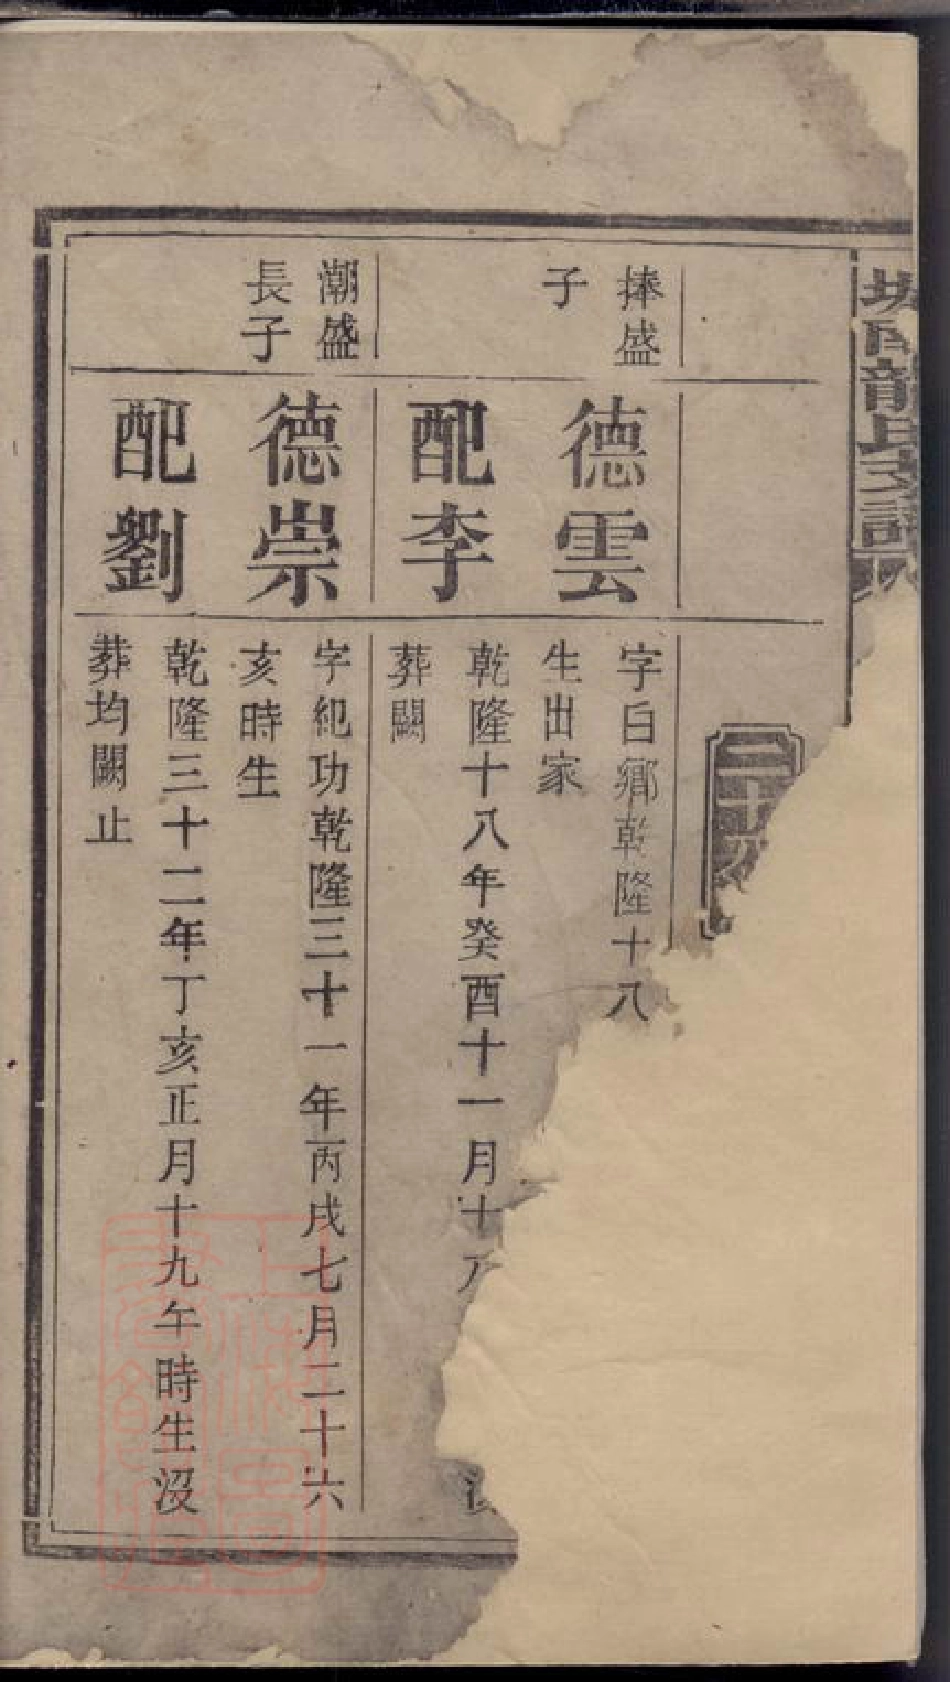 龍氏支譜
二十
捧盛
子
德雲
字白鄉乾隆十八
生出家
配李
乾隆十八年癸酉十一月十
葬闕
潮盛
長子
德崇
字紀功乾隆三十一年丙戌七月二十六
亥時生
配劉
乾隆三十二年丁亥正月十九午時生沒
葬均闕止